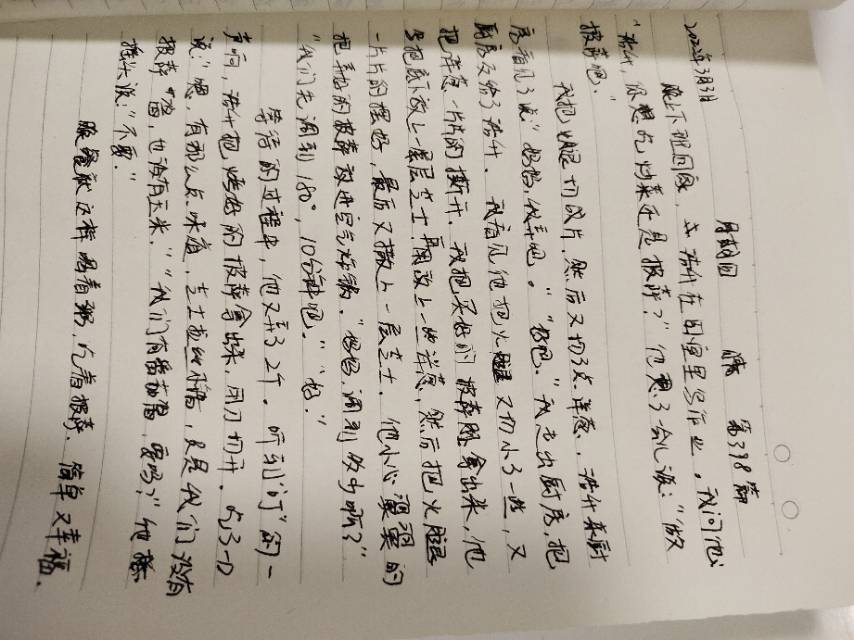 2022年3月3日 周四 晴 第398篇
晚上下班回家，浩升在卧室里写作业。我问他：
“浩升，你想吃炒菜还是披萨？”他想了会儿说：“做
披萨吧。”
我把火腿切成片，然后又切了点洋葱，浩升来厨
房看见了说“妈妈，我弄吧。”“好吧。”我走出厨房，把
厨房交给了浩升。我看见他把火腿又切小了一些，又
把洋葱一片片的撕开。我把买好的披萨胚拿出来，他
把底下放上一层芝士，再放上一些洋葱，然后把火腿
一片片的摆好，最后又撒上一层芝士。他小心翼翼的
把弄好的披萨放进空气炸锅。“妈妈，调到多少啊？”
“我们先调到180°，10分钟吧。”“好。”
等待的过程中，他又弄了2个。听到“叮”的一
声响，浩升把烤好的披萨拿出来，用刀切开。吃了一口
说：“嗯，有那么点味道，芝士拉丝不错，只是我们没有
披萨酱，也没有玉米。”“我们有番茄酱，要吗？”他摇
摇头说：“不要。”
晚餐就这样喝着粥，吃着披萨。简单又幸福。